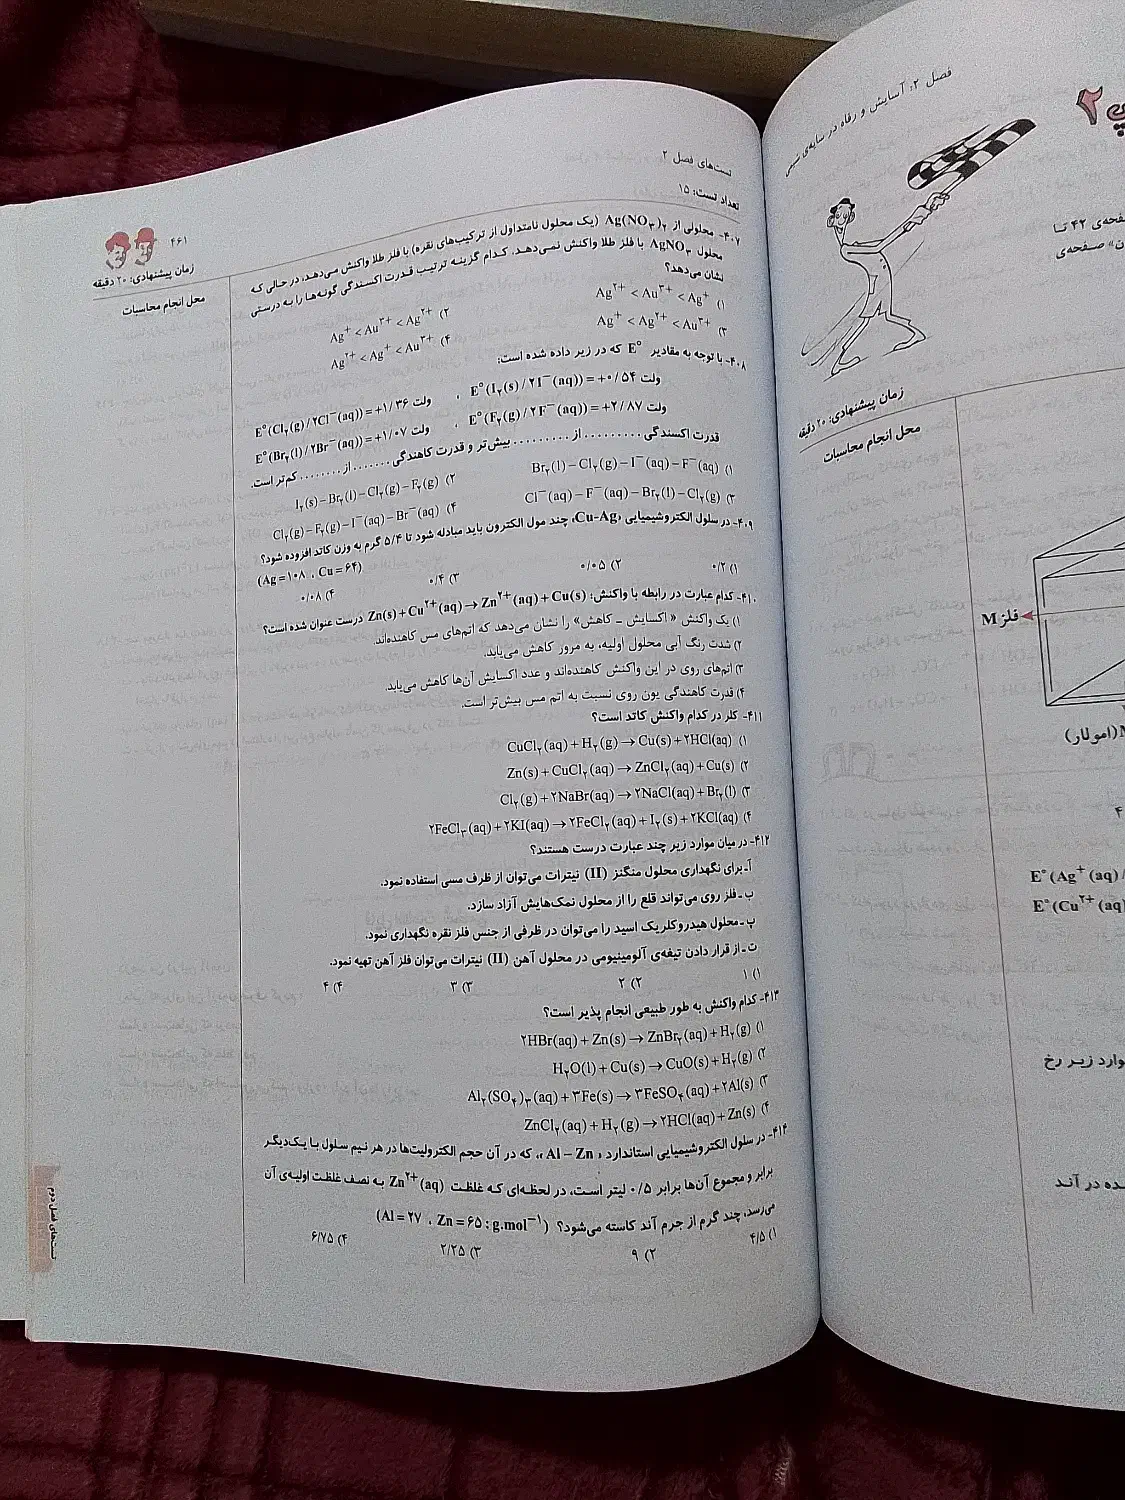 تست‌های فصل ۲
تعداد تست: ۱۵
۴۶۱
زمان پیشنهادی: ۲۰ دقیقه
محل انجام محاسبات
۴۰۷- محلولی از Ag(NO۳)۲ (یک محلول نامتداول از ترکیب‌های نقره) با فلز طلا واکنش می‌دهد، در حالی که
محلول AgNO۳ با فلز طلا واکنش نمی‌دهد. کدام گزینه ترتیب قدرت اکسندگی گونه‌ها را به درستی
نشان می‌دهد؟
۱) Ag۲+ < Au۳+ < Ag+
۲) Ag+ < Au۳+ < Ag۲+
۳) Ag+ < Ag۲+ < Au۳+
۴) Ag۲+ < Ag+ < Au۳+
۴۰۸- با توجه به مقادیر E° که در زیر داده شده است:
E°(I۲(s)/۲I−(aq)) = +۰/۵۴ ولت ، E°(Cl۲(g)/۲Cl−(aq)) = +۱/۳۶ ولت
E°(F۲(g)/۲F−(aq)) = +۲/۸۷ ولت ، E°(Br۲(l)/۲Br−(aq)) = +۱/۰۷ ولت
قدرت اکسندگی ......... از ......... بیش‌تر و قدرت کاهندگی ....... از ....... کم‌تر است.
۱) Br۲(l) – Cl۲(g) – I−(aq) – F−(aq)
۲) I۲(s) – Br۲(l) – Cl۲(g) – F۲(g)
۳) Cl−(aq) – F−(aq) – Br۲(l) – Cl۲(g)
۴) Cl۲(g) – F۲(g) – I−(aq) – Br−(aq)
۴۰۹- در سلول الکتروشیمیایی «Cu-Ag»، چند مول الکترون باید مبادله شود تا ۵/۴ گرم به وزن کاتد افزوده شود؟
(Ag = ۱۰۸ ، Cu = ۶۴)
۱) ۰/۲ ۲) ۰/۰۵ ۳) ۰/۴ ۴) ۰/۰۸
۴۱۰- کدام عبارت در رابطه با واکنش: Zn(s) + Cu۲+(aq) → Zn۲+(aq) + Cu(s) درست عنوان شده است؟
۱) یک واکنش «اکسایش – کاهش» را نشان می‌دهد که اتم‌های مس کاهنده‌اند.
۲) شدت رنگ آبی محلول اولیه، به مرور کاهش می‌یابد.
۳) اتم‌های روی در این واکنش کاهنده‌اند و عدد اکسایش آن‌ها کاهش می‌یابد.
۴) قدرت کاهندگی یون روی نسبت به اتم مس بیش‌تر است.
۴۱۱- کلر در کدام واکنش کاتد است؟
۱) CuCl۲(aq) + H۲(g) → Cu(s) + ۲HCl(aq)
۲) Zn(s) + CuCl۲(aq) → ZnCl۲(aq) + Cu(s)
۳) Cl۲(g) + ۲NaBr(aq) → ۲NaCl(aq) + Br۲(l)
۴) ۲FeCl۳(aq) + ۲KI(aq) → ۲FeCl۲(aq) + I۲(s) + ۲KCl(aq)
۴۱۲- در میان موارد زیر چند عبارت درست هستند؟
آ- برای نگهداری محلول منگنز (II) نیترات می‌توان از ظرف مسی استفاده نمود.
ب- فلز روی می‌تواند قلع را از محلول نمک‌هایش آزاد سازد.
پ- محلول هیدروکلریک اسید را می‌توان در ظرفی از جنس فلز نقره نگهداری نمود.
ت- از قرار دادن تیغه‌ی آلومینیومی در محلول آهن (II) نیترات می‌توان فلز آهن تهیه نمود.
۱) ۱ ۲) ۲ ۳) ۳ ۴) ۴
۴۱۳- کدام واکنش به طور طبیعی انجام پذیر است؟
۱) ۲HBr(aq) + Zn(s) → ZnBr۲(aq) + H۲(g)
۲) H۲O(l) + Cu(s) → CuO(s) + H۲(g)
۳) Al۲(SO۴)۳(aq) + ۳Fe(s) → ۳FeSO۴(aq) + ۲Al(s)
۴) ZnCl۲(aq) + H۲(g) → ۲HCl(aq) + Zn(s)
۴۱۴- در سلول الکتروشیمیایی استاندارد «Al – Zn»، که در آن حجم الکترولیت‌ها در هر نیم سلول با یک‌دیگر
برابر و مجموع آن‌ها برابر ۰/۵ لیتر است، در لحظه‌ای که غلظت Zn۲+(aq) به نصف غلظت اولیه‌ی آن
می‌رسد، چند گرم از جرم آند کاسته می‌شود؟ (Al = ۲۷ ، Zn = ۶۵ : g.mol−۱)
۱) ۴/۵ ۲) ۹ ۳) ۲/۲۵ ۴) ۶/۷۵
تست‌های فصل دوم
فصل ۲: آسایش و رفاه در سایه‌ی شیمی
۲
فحه‌ی ۴۲ تا
ن» صفحه‌ی
زمان پیشنهادی: ۲۰ دقیقه
محل انجام محاسبات
فلز M
(۱مولار)
۴
E°(Ag+(aq)/
E°(Cu۲+(aq)
وارد زیر رخ
ده در آند